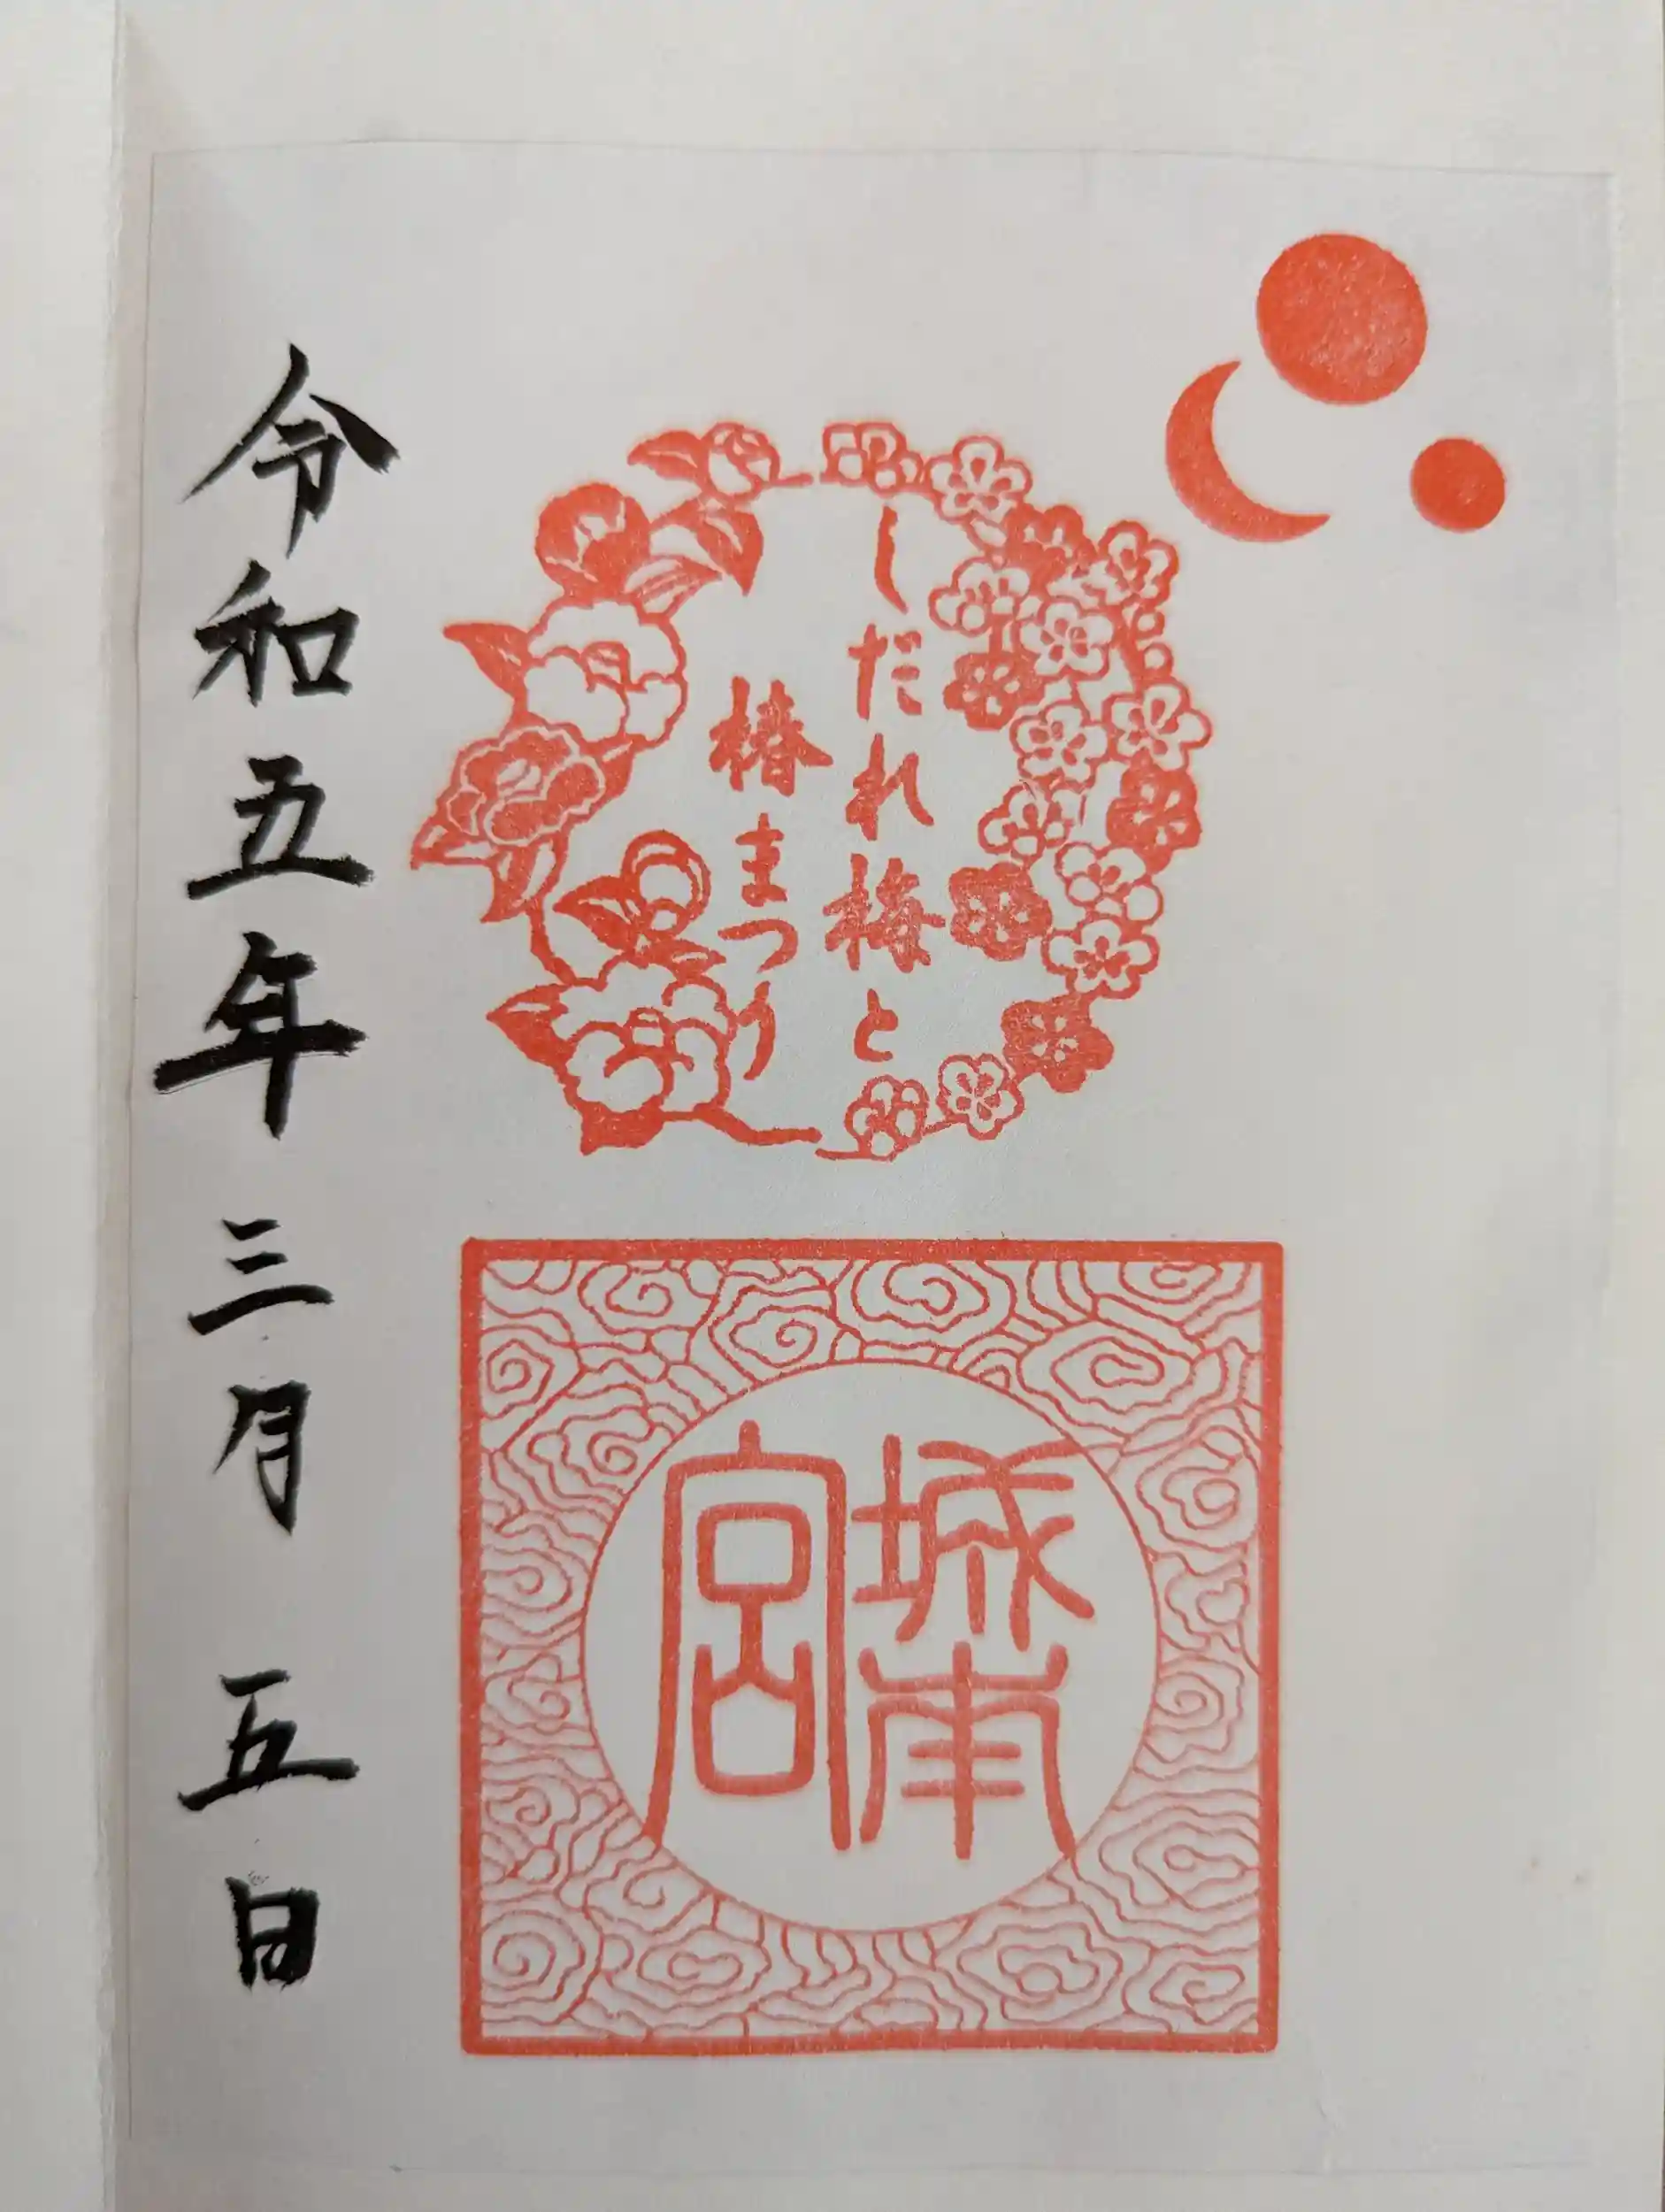 しだれ梅と
椿まつり
城南
宮
令和五年三月五日